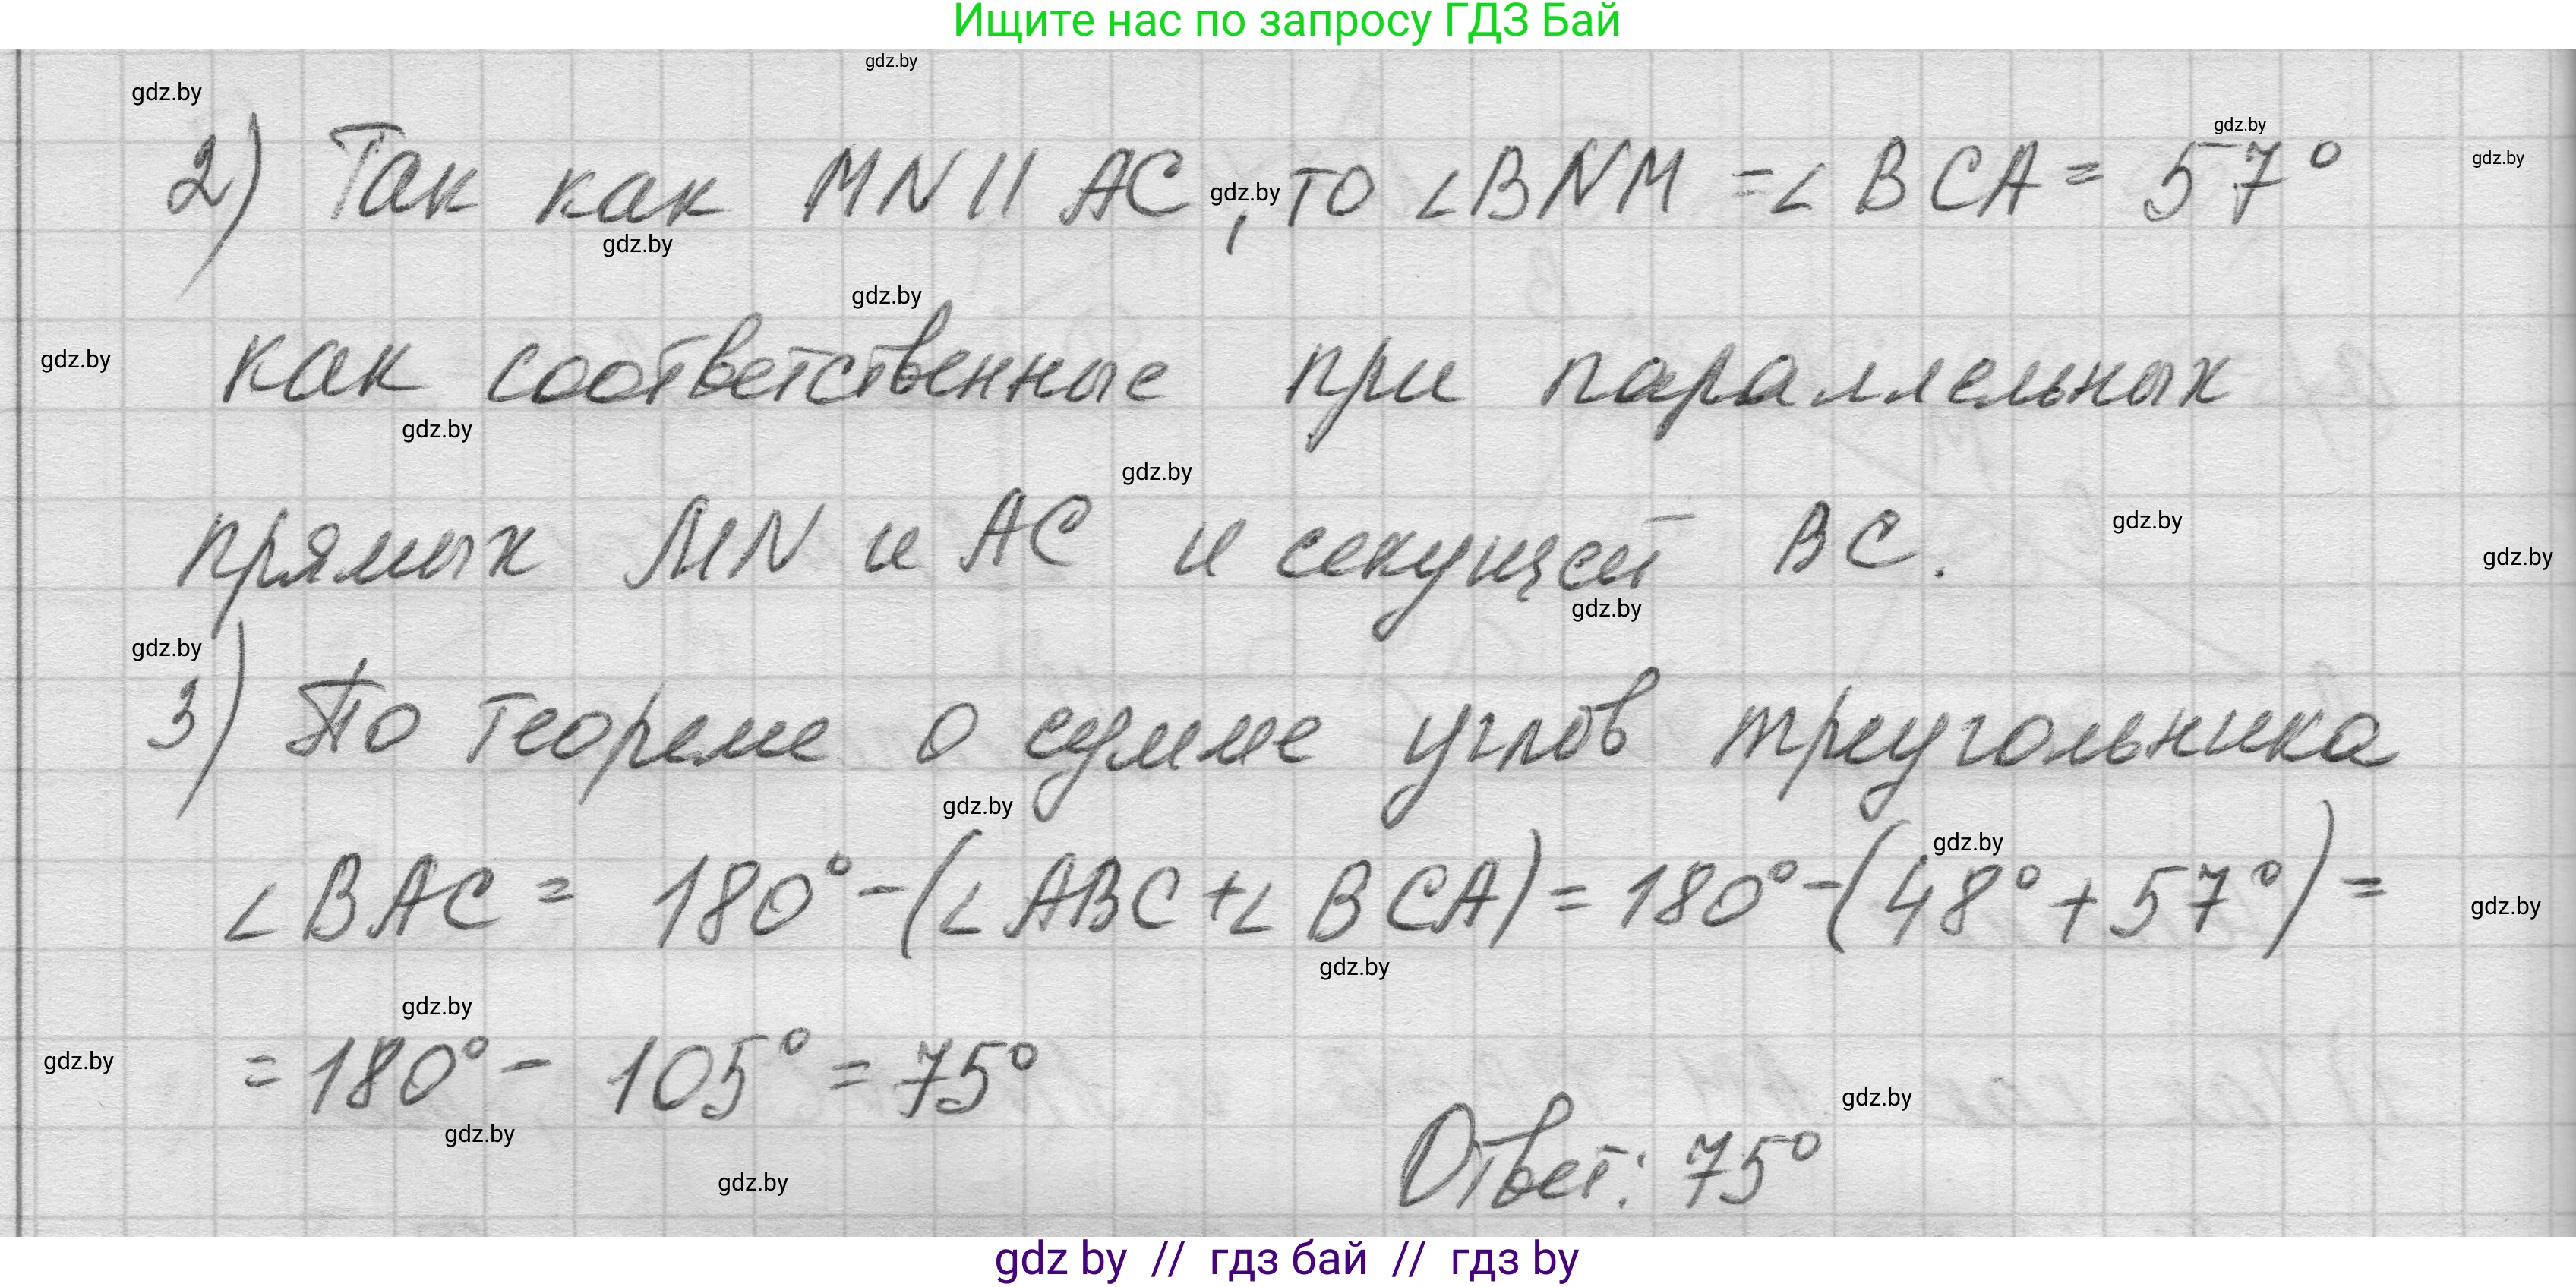 Ищите нас по запросу ГДЗ Бай
gdz.by
gdz.by
gdz.by
gdz.by
2) Так как MN || AC, то ∠BNM = ∠BCA = 57°
gdz.by
gdz.by
gdz.by
gdz.by
как соответственные при параллельных
gdz.by
gdz.by
gdz.by
прямых MN и AC и секущей BC.
gdz.by
gdz.by
gdz.by
3) По теореме о сумме углов треугольника
gdz.by
gdz.by
∠BAC = 180° - (∠ABC + ∠BCA) = 180° - (48° + 57°) =
gdz.by
gdz.by
gdz.by
gdz.by
= 180° - 105° = 75°
gdz.by
gdz.by
Ответ: 75°
gdz.by
gdz by // гдз бай // гдз by